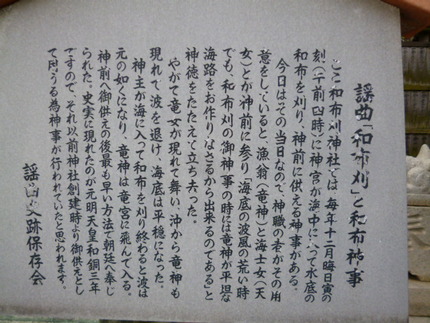 謡曲「和布刈」と和布祷事
ここ和布刈神社では、毎年十二月晦日寅の
刻(午前四時)に神官が海中に入って水底の
和布を刈り、神前に供える神事がある。
今日はその当日なので、神職の者がその用
意をしていると、漁翁(竜神)と海士女(天
女)とが神前に参り「海底の波風の荒い時
でも、和布刈の御神事の時には竜神が平坦な
海路をお作りなさるから出来るのである」と
神徳をたたえて立ち去った。
やがて竜女が現れて舞い、沖から竜神も
現れて、波を退け、海底は平穏になった。
神主が海に入って和布を刈り終わると波は
元の如くになり、竜神は竜宮に飛んで入る。
神前へ御供えの後最も早い方法で朝廷へ奉じ
られた、史実に現れたのが元明天皇和銅三年
ですので、それ以前神社創建時より御供えとし
て用うる為神事が行われていたと思われます。
謡曲史跡保存会